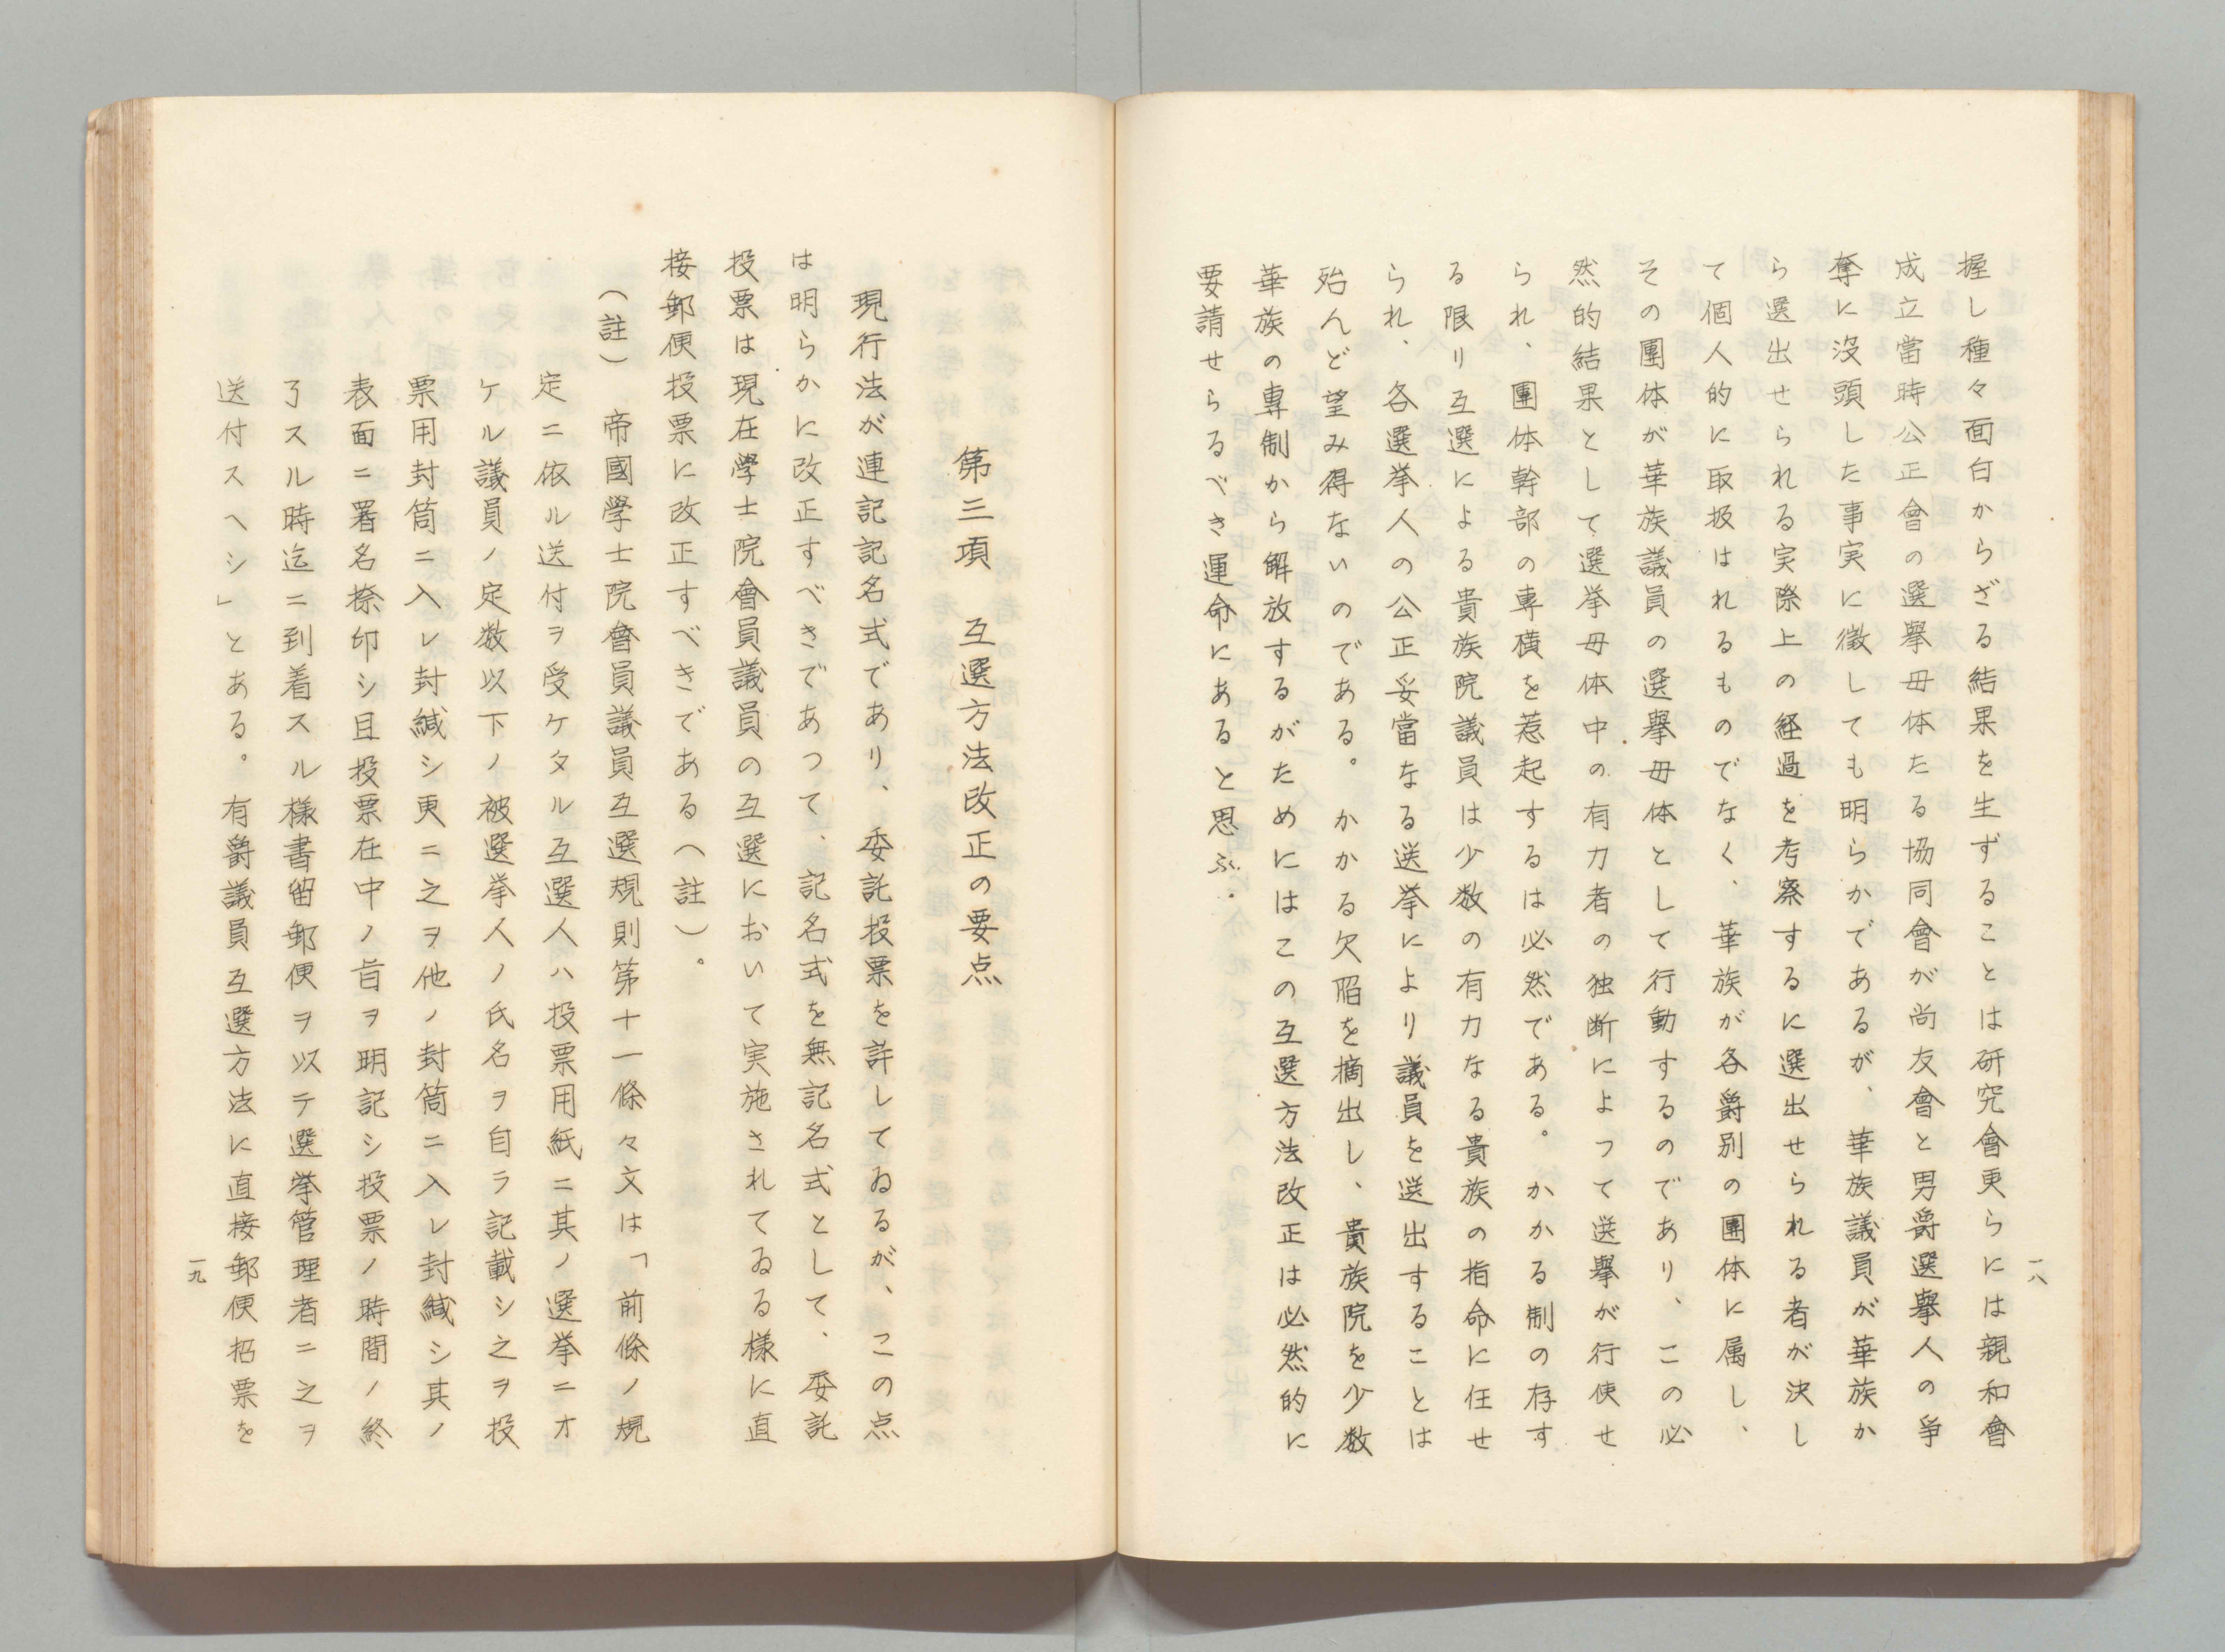 握し種々面白からざる結果を生ずることは研究會更らには親和會
成立當時公正會の選擧母体たる協同會が尚友會と男爵選擧人の爭
奪に沒頭した事実に徴しても明らかであるが、華族議員が華族か
ら選出せられる実際上の経過を考察するに選出せられる者が決し
て個人的に取扱はれるものでなく、華族が各爵別の團体に属し、
その團体が華族議員の選擧母体として行動するのであり、この必
然的結果として選挙母体中の有力者の独断によつて選擧が行使せ
られ、團体幹部の専横を惹起するは必然である。かかる制の存す
る限り互選による貴族院議員は少数の有力なる貴族の指命に任せ
られ、各選挙人の公正妥當なる选挙により議員を选出することは
殆んど望み得ないのである。かかる欠陥を摘出し、貴族院を少数
華族の専制から解放するがためにはこの互選方法改正は必然的に
要請せらるべき運命にあると思ふ.
一八
第三項 互選方法改正の要点
現行法が連記記名式であり、委託投票を許してゐるが、この点
は明らかに改正すべきであつて、記名式を無記名式として、委託
投票は現在学士院會員議員の互選において実施されてゐる様に直
接郵便投票に改正すべきである（註）。
（註） 帝國学士院會員議員互選規則第十一條々文は「前條ノ規
定ニ依ル送付ヲ受ケタル互選人ハ投票用紙ニ其ノ選挙ニオ
ケル議員ノ定数以下ノ被選挙人ノ氏名ヲ自ラ記載シ之ヲ投
票用封筒ニ入レ封緘シ更ニ之ヲ他ノ封筒ニ入レ封緘シ其ノ
表面ニ署名捺印シ且投票在中ノ旨ヲ明記シ投票ノ時間ノ終
了スル時迄ニ到着スル様書留郵便ヲ以テ選挙管理者ニ之ヲ
送付スヘシ」とある。有爵議員互選方法に直接郵便投票を
一九